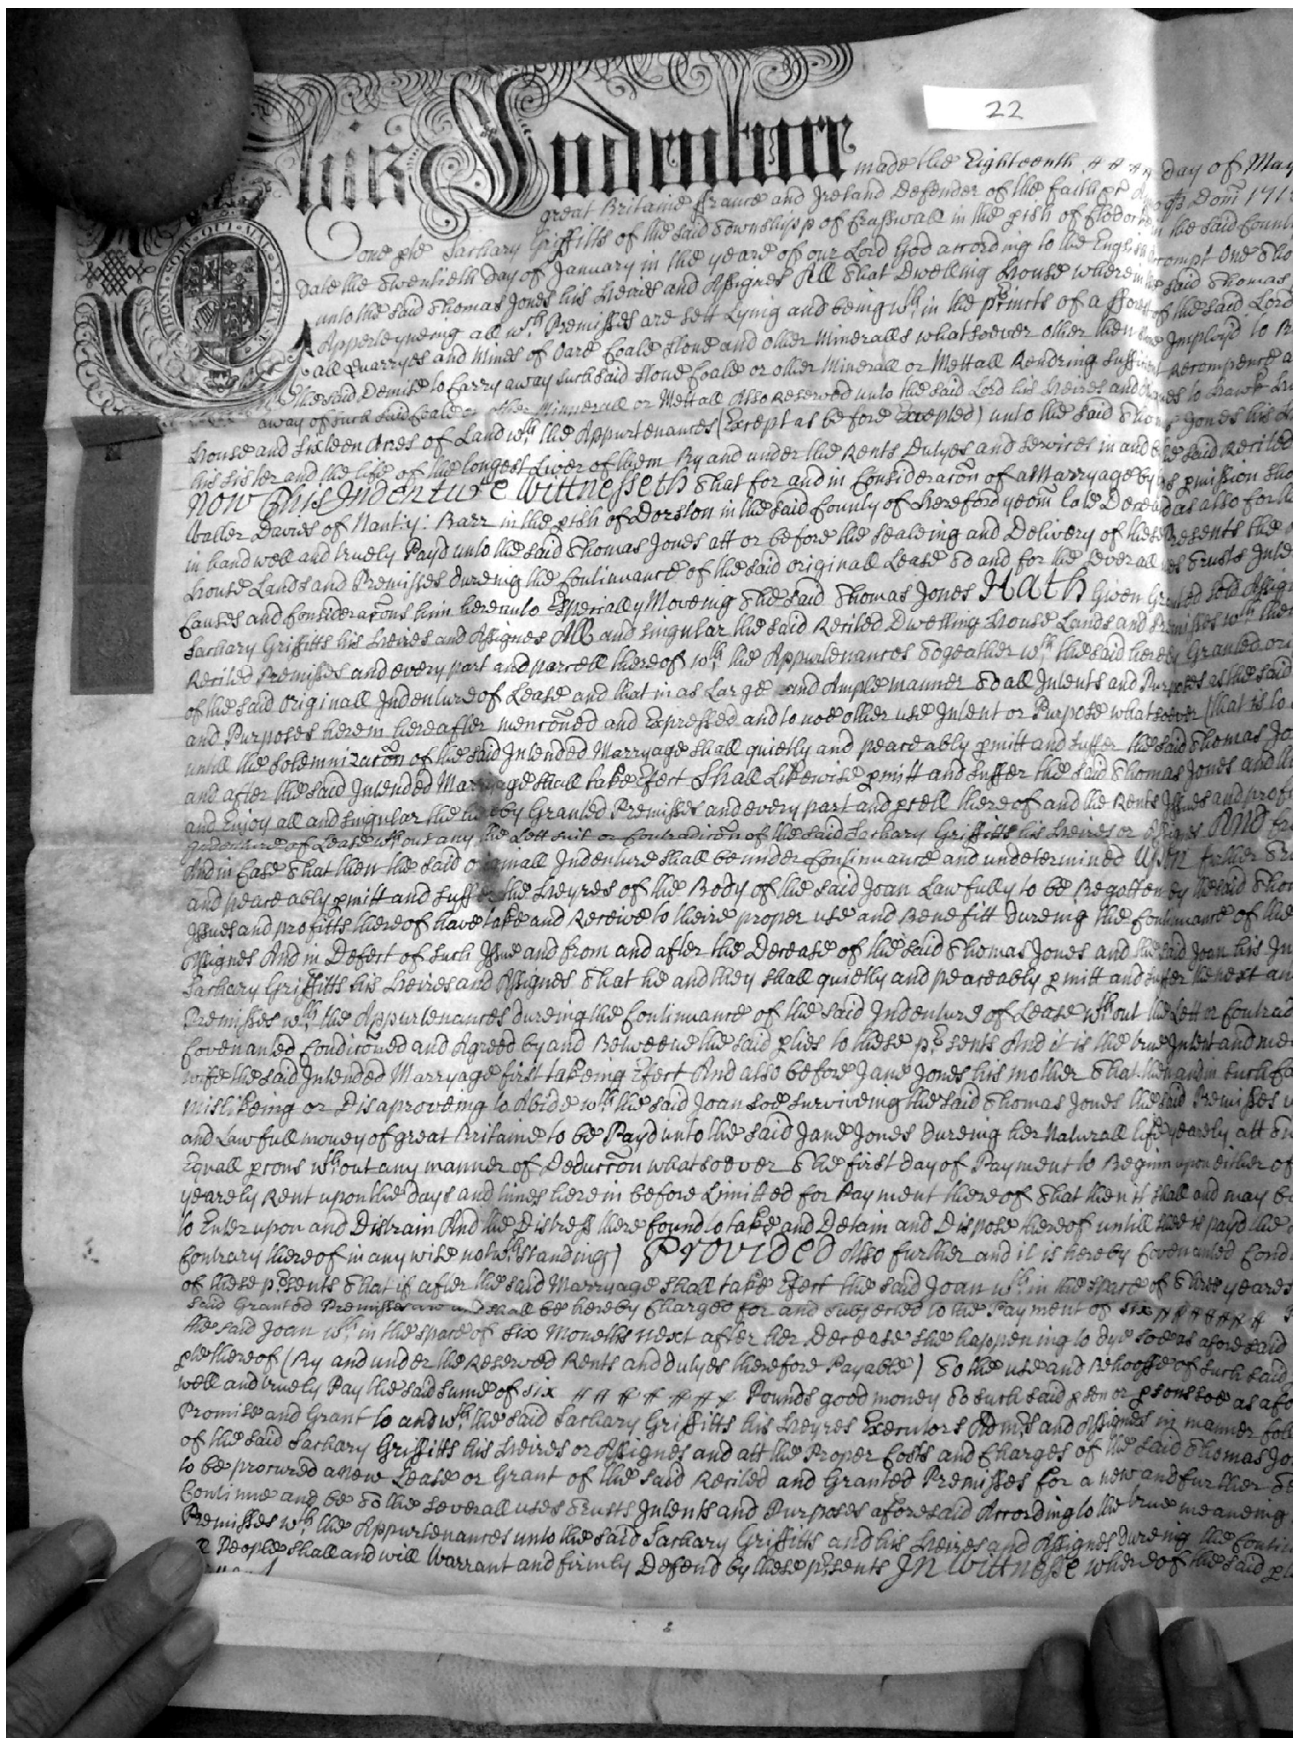 22
This Indenture made the Eighteenth day of May
great Britaine ffrance and Ireland Defender of the faith &c Dom 171
one pte Zachary Griffitts of the said Townshipp of Crasswall in the pish of Clodock in the said Count
Date the Twentieth Day of January in the yeare of our Lord God according to the English Compt One Tho
unto the said Thomas Jones his Heires and Assignes All That Dwelling House wherein the said Thomas
Apperteyneing all wch Premisses are sett Lying and being wthin the princts of a fforest of the said Lord
all Quarryes and Mines of Oare Coale Stone and other Mineralls whatsoever other then Imployd to
the said Demise to Carry away such said Stone Coale or other Minerall or Mettall Rendring sufficient Recompence
away of such said Coale or other Minnerall or Mettall Also Reserved unto the said Lord his Heires and to Hawk
House and Sixteen Acres of Land wth the Appurtenances (Except as before Excepted) unto the said Thomas Jones his
his sister and the life of the longest Liver of them By and under the Rents Dutyes and services in and said Recited
Now This Indenture Wittnesseth That for and in Consideracon of a Marryage by pmission
Walter Davies of Nanty: Barr in the pish of Dorston in the said County of Hereford yeom late Deceased as also for
in hand well and truely Payd unto the said Thomas Jones att or before the sealeing and Delivery of these Presents the
House Lands and Premisses dureing the Continuance of the said originall Lease To and for the severall uses Trusts
Causes and Consideracons him hereunto Especially Moveing The said Thomas Jones Hath Given Granted sold
Zachary Griffitts his Heires and Assignes All and singular the said Recited Dwelling House Lands and Premisses wth
Recited Premisses and every part and parcell thereof wth the Appurtenances Togeather wth the said hereby Granted
of the said Originall Indenture of Lease and that in as Large and Ample manner To all Intents and Purposes as the said
and Purposes herein hereafter menconed and Expressed and to noe other use Intent or Purpose whatsoever (that is to
untill the solemnizacon of the said Intended Marryage shall quietly and peaceably pmitt and suffer the said Thomas
and after the said Intended Marryage shall take Efect Shall Likewise pmitt and suffer the said Thomas Jones and
and Enjoy all and singular the hereby Granted Premisses and every part and pcell thereof and the Rents Issues and
Indenture of Lease wthout any the Lett suit or Contradicon of the said Zachary Griffitts his Heires or Assignes And
And in Case That then the said originall Indenture shall be under Continuance and undetermined Upon
and peaceably pmitt and suffer the Heyres of the Body of the said Joan Lawfully to be Begotten by the said
Issues and proffitts thereof have take and Receive to theire proper use and Benefitt dureing the Continuance of the
Assignes And in Defect of such Issue and from and after the Decease of the said Thomas Jones and the said Joan his
Zachary Griffitts his Heires and Assignes That he and they shall quietly and peaceably pmitt and suffer the next
Premisses wth the Appurtenances dureing the Continuance of the said Indenture of Lease wthout the Lett or
Covenanted Condiconed and Agreed by and Betweene the said pties to these psents And it is the true Intent and
wife the said Intended Marryage first takeing Efect And also before Jane Jones his mother That then and in such
mislikeing or Disaproveing to Abide wth the said Joan soe surviveing the said Thomas Jones the said Premisses
and Lawfull money of great Britaine to be Payd unto the said Jane Jones dureing her Naturall life yearely att
Equall pcons wthout any manner of Deduccon whatsoever The first day of Payment to Beginn upon either of
yearely Rent upon the Days and times herein before Limitted for Payment thereof That then it shall and may
to Enter upon and Distrain And the Distress there found to take and Detain and Dispose thereof untill shee is payd the
Contrary thereof in any wise notwthstanding) Provided Also further and it is hereby Covenanted
of these psents That if after the said Marryage shall take Efect the said Joan wthin the space of Three yeares
said Granted Premisses are and shall be hereby Charged for and subjected to the Payment of six
the said Joan wthin the space of six Moneths next after her Decease she happening to dye soe as aforesaid
pte thereof (By and under the Reserved Rents and dutyes therefore Payable) To the use and Behoofe of such said
well and truely Pay the said sume of six Pounds good money To such said pson or psons soe as
Promise and Grant to and wth the said Zachary Griffitts his Heyres Executors Admrs and Assignes in manner
of the said Zachary Griffitts his Heires or Assignes and att the Proper Costs and Charges of the said Thomas
to be procured a New Lease or Grant of the said Recited and Granted Premisses for a new and further
Continue and be To the severall uses Trusts Intents and Purposes aforesaid According to the true meaneing
Premisses wth the Appurtenances unto the said Zachary Griffitts and his Heires and Assignes dureing the
People shall and will Warrant and firmly Defend by these psents In Wittnesse whereof the said